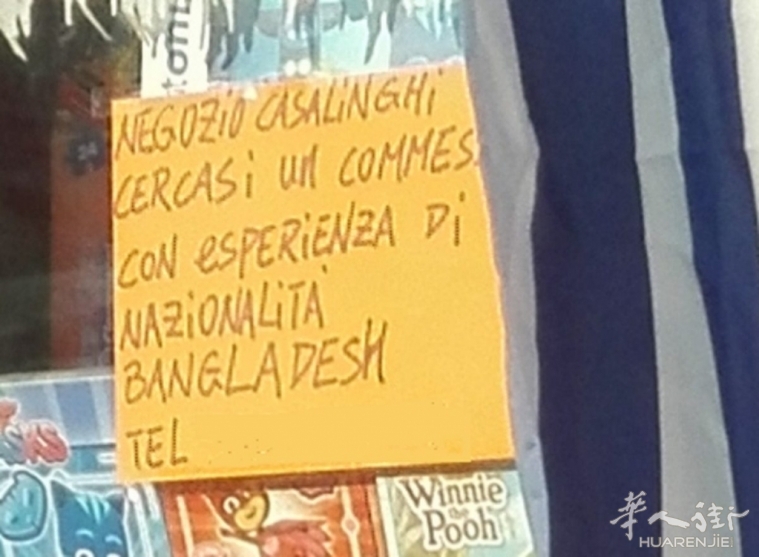 NEGOZIO CASALINGHI
CERCASI UN COMMES
CON ESPERIENZA DI
NAZIONALITÀ
BANGLADESH
TEL
Winnie
the
Pooh
华人街
HUARENJIE